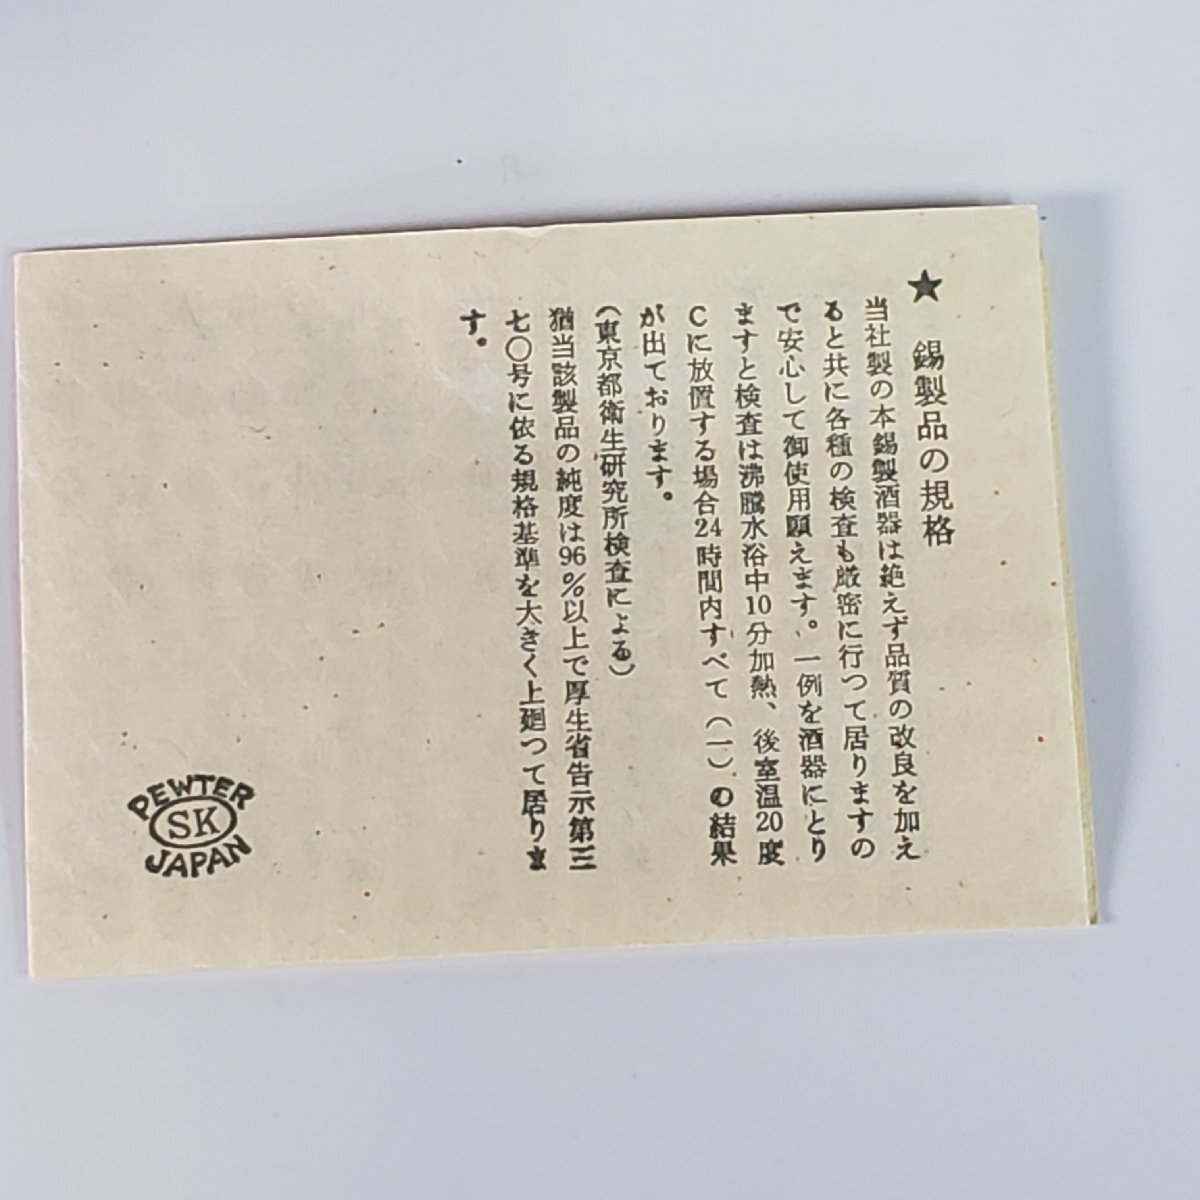 ★ 錫製品の規格
当社製の本錫製酒器は絶えず品質の改良を加え
ると共に各種の検査も厳密に行つて居りますの
で安心して御使用願えます。一例を酒器にとり
ますと検査は沸騰水浴中10分加熱、後室温20度
Cに放置する場合24時間内すべて(一)の結果
が出ております。
(東京都衛生研究所検査による)
猶当該製品の純度は96%以上で厚生省告示第三
七〇号に依る規格基準を大きく上廻つて居りま
す。
PEWTER
SK
JAPAN